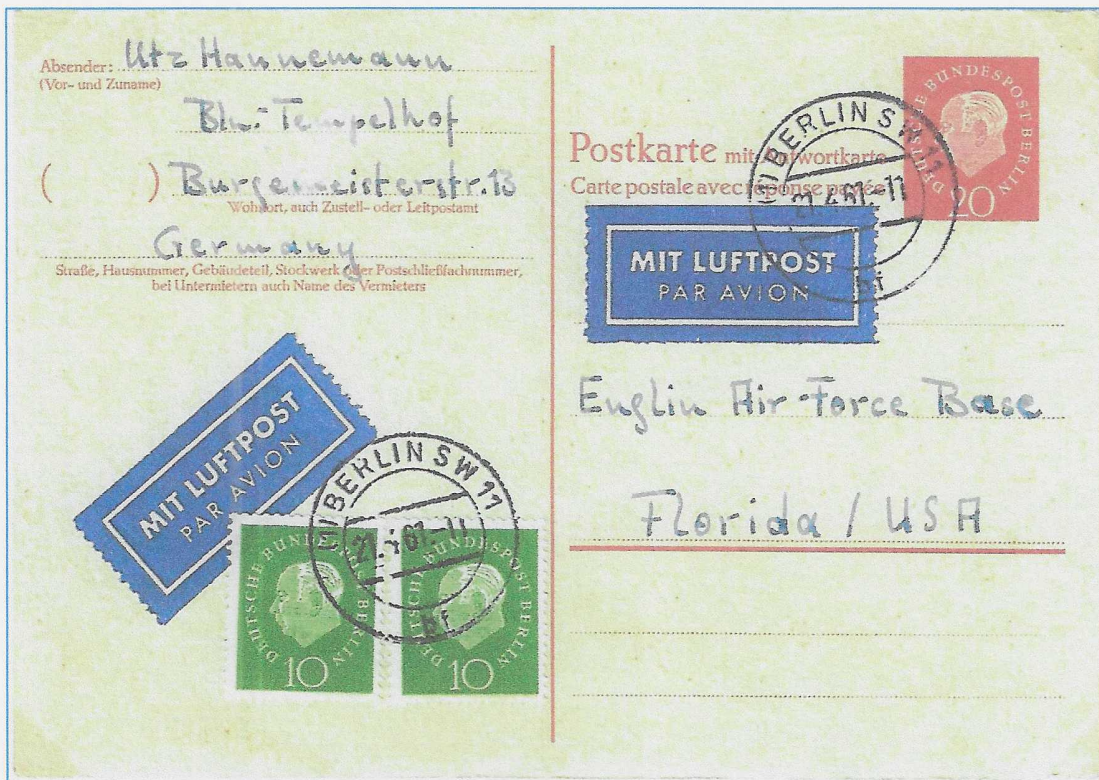 Absender: Utz Hannemann
(Vor- und Zuname)
Bln.-Tempelhof
( ) Burgemeisterstr. 13
Wohnort, auch Zustell- oder Leitpostamt
Germany
Straße, Hausnummer, Gebäudeteil, Stockwerk oder Postschließfachnummer,
bei Untermietern auch Name des Vermieters
MIT LUFTPOST
PAR AVION
DEUTSCHE BUNDESPOST BERLIN
10
DEUTSCHE BUNDESPOST BERLIN
10
BERLIN SW 11
21.4.61.-11
bf
DEUTSCHE BUNDESPOST BERLIN
20
Postkarte mit Antwortkarte
Carte postale avec réponse payée
BERLIN SW 11
21.4.61.-11
bf
MIT LUFTPOST
PAR AVION
Englin Air-Force Base
Florida / USA